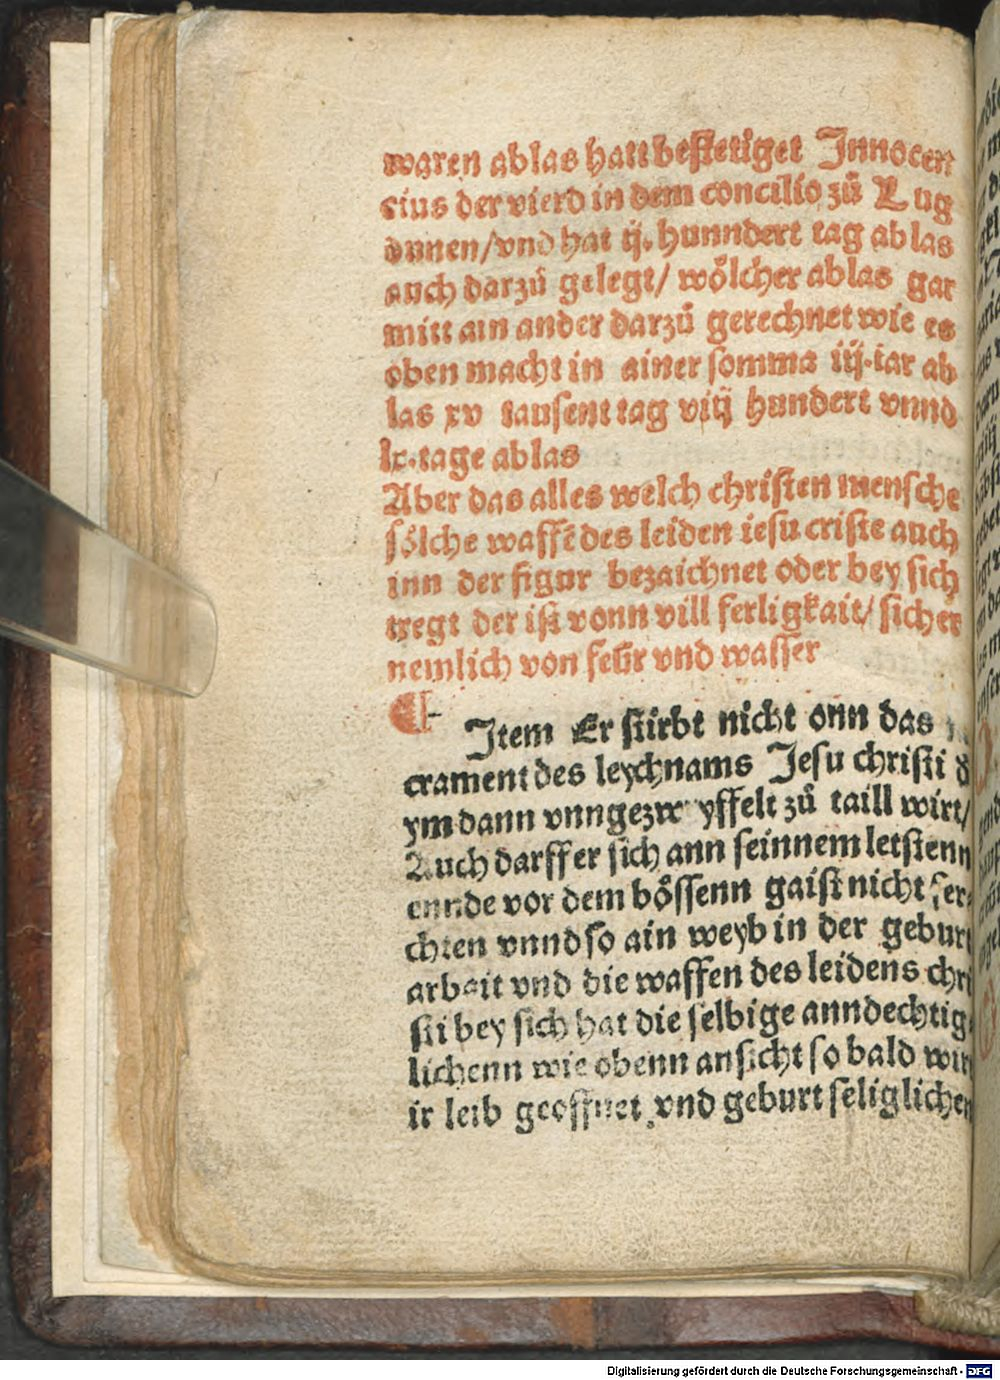 waren ablas hatt bestetiget Innocen
cius der vierd in dem concilio zů Lug
dunen/vnd hat ij. hunndert tag ablas
auch darzů gelegt/ wölcher ablas gar
mitt ain ander darzů gerechnet wie es
oben macht in ainer somma iij.iar ab
las xv tausent tag viij hundert vnnd
lx.tage ablas
Aber das alles welch christen mensche
sölche waffē des leiden iesu criste auch
inn der figur bezaichnet oder bey sich
tregt der ist vonn vill ferligkait/ sicher
nemlich von feür vnd wasser
Item Er stirbt nicht onn das
crament des leychnams Jesu christi d
ym dann vnngezwyffelt zů taill wirt/
Auch darff er sich ann seinnem letstenn
ennde vor dem bössenn gaist nicht fer
chten vnnd so ain weyb in der geburt
arbait vnd die waffen des leidens chri
sti bey sich hat die selbige anndechtig
lichenn wie obenn ansicht so bald wirt
ir leib geoffnet vnd geburt seliglichen
Digitalisierung gefördert durch die Deutsche Forschungsgemeinschaft - DFG